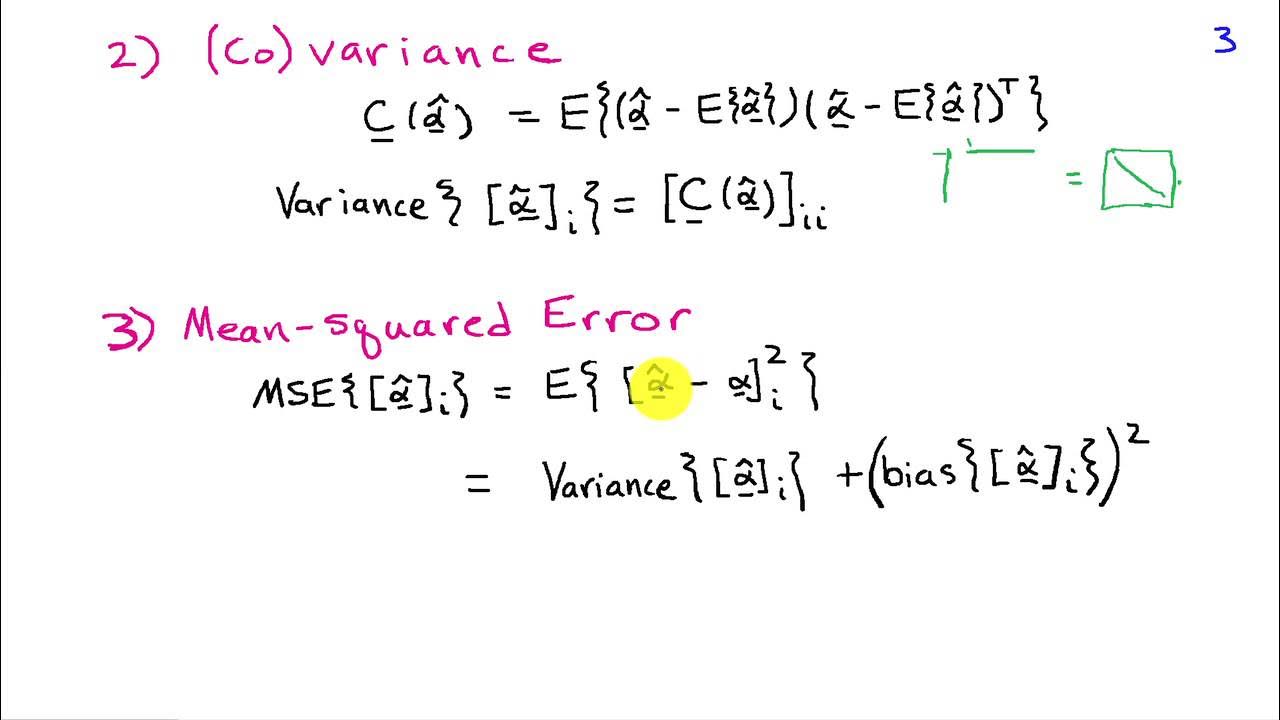 3
2) (Co)variance
C̲(α̲̂) = E{(α̲̂ - E{α̲̂})(α̲̂ - E{α̲̂})ᵀ}
Variance{[α̲̂]ᵢ} = [C̲(α̲̂)]ᵢᵢ
=
3) Mean-squared Error
MSE{[α̲̂]ᵢ} = E{[α̲̂ - α̲]ᵢ²}
= Variance{[α̲̂]ᵢ} + (bias{[α̲̂]ᵢ})²